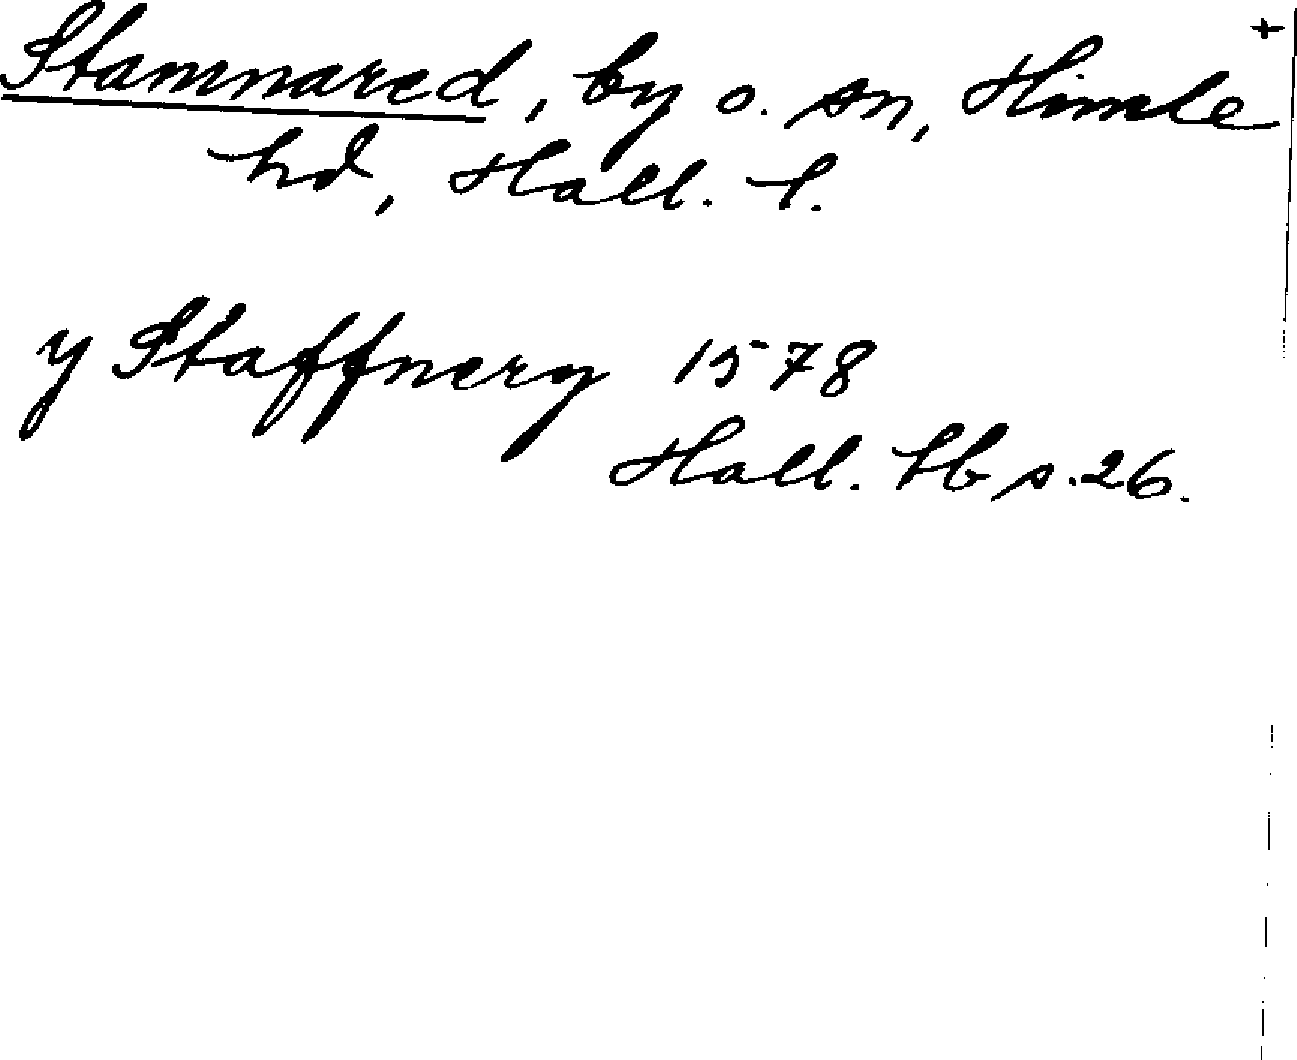 Stamnared, by o. sn, Himle +
hd, Hall. l.
y Staffnery 1578
Hall. lb s. 26.